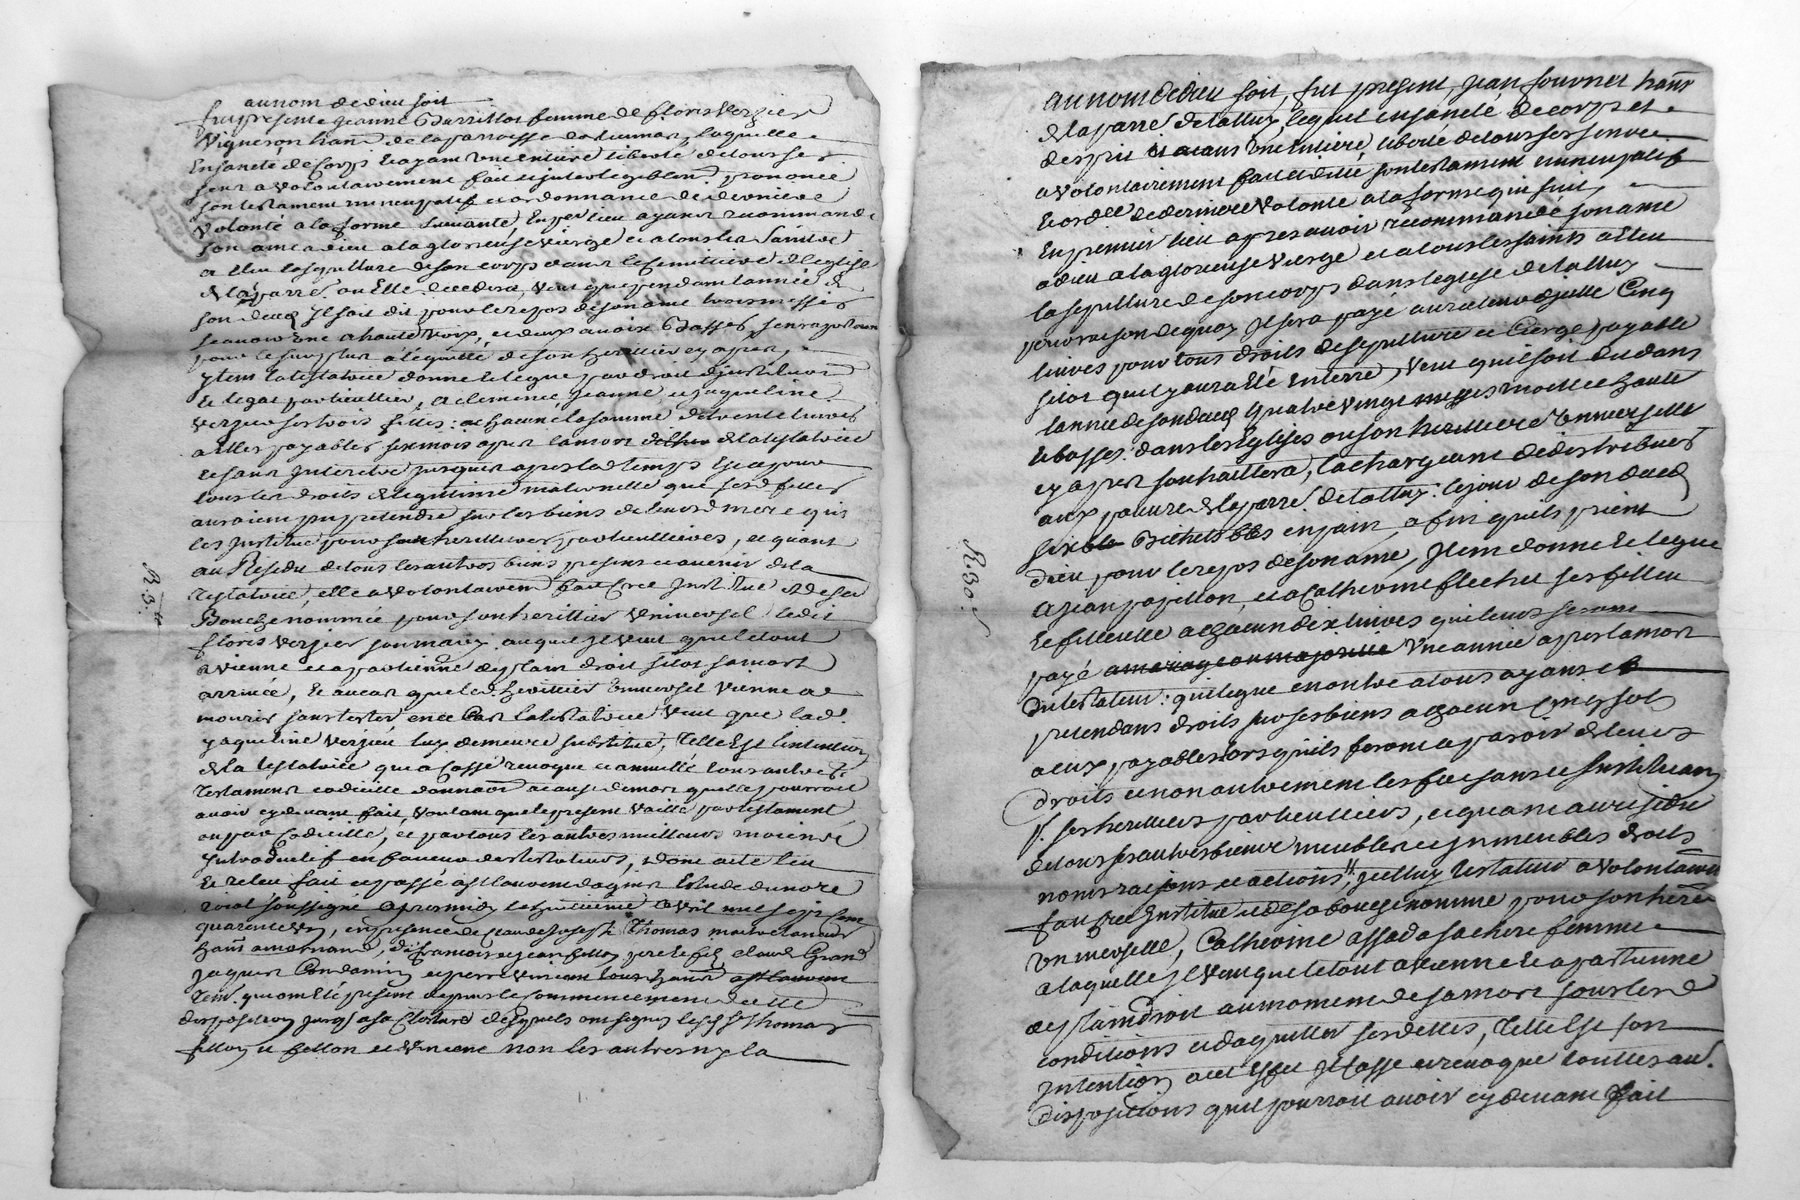 au nom de dieu soit
fut presente jeanne Barrillot femme de floris Verzier
Vigneron hant de la parroisse laquelle
En santé de Corps Et ayant Une entiere liberté de tous ses
sens a volontairement fait prononcé
son testament nuncupatif et ordonnance de derniere
Volonté a la forme suivante, En per lieu ayant recommandé
son ame a dieu a la glorieuse vierge et a tous les Saints
a Elleu la sepulture de son corps dans le Cimettiere de leglise
de la parre ou Elle decedera, Veut que pendant lannée de
son deces Il soit dit pour le repos de son ame trois messes
scavoir Une a haute Voix, et deux a voix Basses, sen raportant
pour le surplus a lequitté de son heritier cy apres,
ytem la testatrice donne et legue par droit dinstitution
Et legat particullier, a clemence, jeanne, et jaqueline
Verzieu ses trois filles: a chacune la somme de trente livres
a Elles payables six mois apres la mort de la testatrice
Et sans Interetz jusques apres led temps Et ce pour
tous les droits de legitime maternelle que sesd filles
auroient pu pretendre sur les biens de leurd mere qui
les Institue pour ses heritieres particullieres, et quant
au Residu de tous les autres biens presens et avenir de la
testatrice, elle a volontairemt fait Cree Institue et de sa
Bouche nommée pour son herittier Universel ledit
floris Verzier son mary auquel Il Veut que le tout
avienne et apartienne de plain droit sitot sa mort
arrivée, Et au cas que led. herittier Universel Vienne a
mourir sans tester en ce Cas la testatrice Veut que lad.
jaqueline Verzieu luy demeure substitué, Telle Est lintention
de la testatrice qui a Cassé revoque et annullé tous autres
Testament codicille donnaon a cause de mort quelle pourroit
avoir cy devant fait, voulant que le present vaille par testament,
ou par Codicille, et par tous les autres meilleurs moiens
Introductif en faveur des testateurs, dont acte leu
Et releu fait et passé a St Laurent dagny Estude du nore
roial soussigné apres midy le huitieme avril mil sept cent
quarente Un, en presence de Claude Joseph Thomas
hant a mornand, françois et jean fillon pere et fils claude Grand
jaques Condamin et pierre Vincent tous hants a St Laurent
tem. qui ont Eté present depuis le commencement de cette
disposition jusqu a sa Closture desquels ont signés lesd Sr Thomas
fillon et fillon et Vincent non les autres ny la
R. 3.
au nom de dieu soit, fut present, jean hant
de la parre de taluy, lequel en santé de corps et
desprit et aiant Une entiere liberté de tous ses sens
a volontairement fait et dicté son testament nuncupatif
Et ordce de derniere Volonté a la forme qui suit,
En premier lieu apres avoir recommandé son ame
a dieu a la glorieuse Vierge et a tous les saints a Elleu
la sepulture de son corps dans leglise de taluy
pour raison de quoy Il sera payé au rateur dicelle Cinq
livres pour tous droits de sepulture et Cierge payable
sitot quil y aura Eté Enterré, Veut quil soit dit dans
lannée de son deces quatre Vingt messes moitié haute
Et basses dans les Eglises ou son heritiere Universelle
cy apres souhaittera, la chargeant de distribuer
aux pauvres de la parre de taluy. le jour de son deces
six Bichets bles en pain, afin quils prient
dieu pour le repos de son ame, Item donne Et legue
a jean papillon, et a Catherine flechet ses filleu
Et filleulle a chacun dix livres qui leurs seront
payé Une année apres la mort
du testateur: qui legue en outre a tous ayans et
pretendans droits sur ses biens a chacun Cinq sols
a eux payables lors quils feront aparoir de leurs
droits et non autrement les faisans et Instituans
ses heritiers particulliers, et quant au residu
de tous ses autres biens meubles et Immeubles droits
noms raisons et actions, Icelluy testateur a volontairemt
fait Cree Institue et de sa bouche nomme pour son here
Universelle, Catherine assada sa chere femme
a laquelle Il Veut que le tout avienne Et apartienne
de plain droit au moment de sa mort sous les
conditions et daquitter ses dettes, Telle Est son
Intention a cet Effet Il Casse et revoque touttes aut.
dispositions quil pourroit avoir cy devant fait
R. 30.